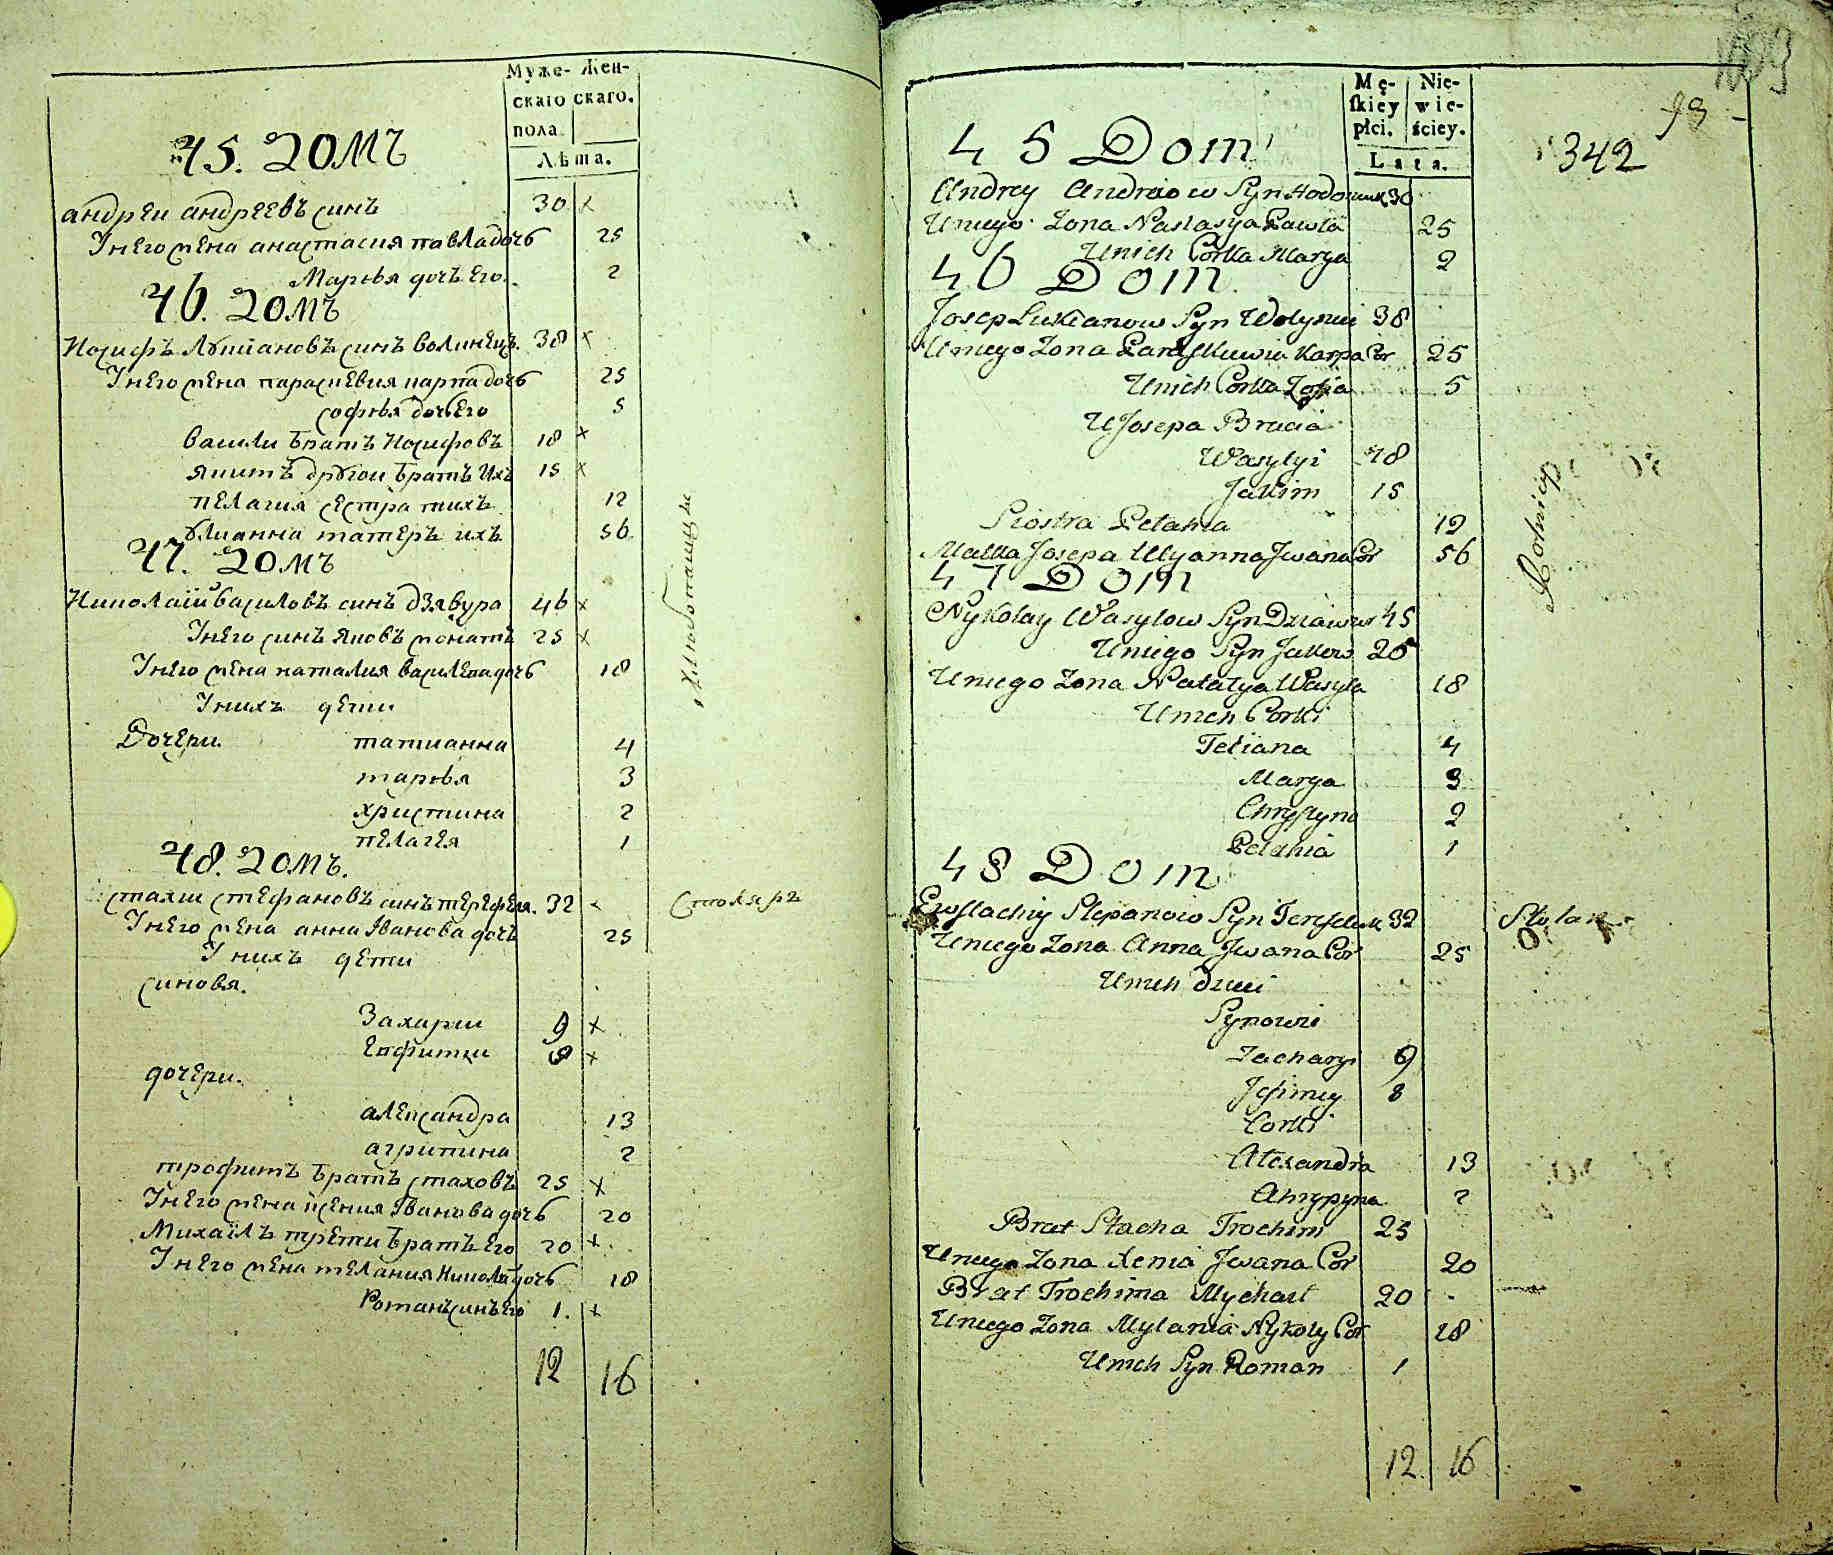 Муже-
скаго
пола.
Жен-
скаго.
Лѣта.
45. Домъ
андреи андреевъ синъ 30 х
Унего жена анастасия павла дочь 25
Марья дочъ Его. 2
46. Домъ
Иосифъ Лукіановъ синъ волинецъ. 38 х
Унего жена параскевия карпа дочь 25
софья дочь Его 5
васили братъ Иосифовъ 18 х
якимъ другои братъ Ихъ 15 х
пелагия сестра тихъ 12
улианна матеръ ихъ 56.
47. Домъ
Николаій василовъ синъ дзявура 46 х
Унего синъ яковъ женатъ 25 х
Унего жена наталия василева дочь 18
Унихъ дети
Дочери. татианна 4
марья 3
христина 2
пелагея 1
48. Домъ.
стахи стефановъ синъ 32 х
столяръ
Унего жена анна Иванова дочь 25
Унихъ дети
синовя.
Захарии 9 х
Евфимки 8 х
дочери.
александра 13
агрипина 2
трофимъ братъ стаховъ 25 х
Унего жена ксения Иванова дочь 20
Михаілъ трети братъ Его 20 х
Унего жена мелания Никола дочь 18
Романъ синъ Его 1. х
12 16
хлѣбопашцы
103
93
342
Mę-
skiey
płci.
Nie-
wie-
ściey.
Lata.
45 Dom
Andrey Andreiow Syn 30
Uniego Zona Nastasya Pawła 25
Unich Corka Marya 2
46 Dom.
Josep Lukianow Syn Wołyniec 38
Uniego Zona Paraskiewia Karpa Cor 25
Unich Corka Zofia 5
U Josepa Bracia
Wasylyi 18
Jakim 15
Siostra Pelahia 12
Matka Josepa Ulyanna Jwana Cor 56
47 Dom
Nykolay Wasylow Syn Dziawur 45
Uniego Syn Jakow 25
Uniego Zona Natalya Wasyla 18
Unich Corki
Tetiana 4
Marya 3
Chrystyna 2
Pelahia 1
Rolnicy
48 Dom
Ewstachiy Stepanow Syn 32
Stolarz
Uniego Zona Anna Jwana Cor 25
Unich dzieci
Synowie
Zachary 9
Jefimiy 8
Corki
Alexandra 13
Ahrypyna 2
Brat Stacha Trochim 25
Uniego Zona Xenia Jwana Cor 20
Brat Trochima Mychael 20
Uniego Zona Mylania Nykoly Cor 18
Unich Syn Roman 1
12. 16